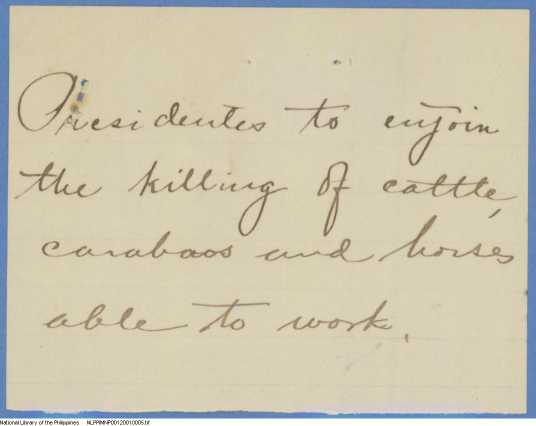 Presidentes to enjoin
the killing of cattle,
carabaos and horses
able to work.
National Library of the Philippines NLPPIMNP00120010005.tif